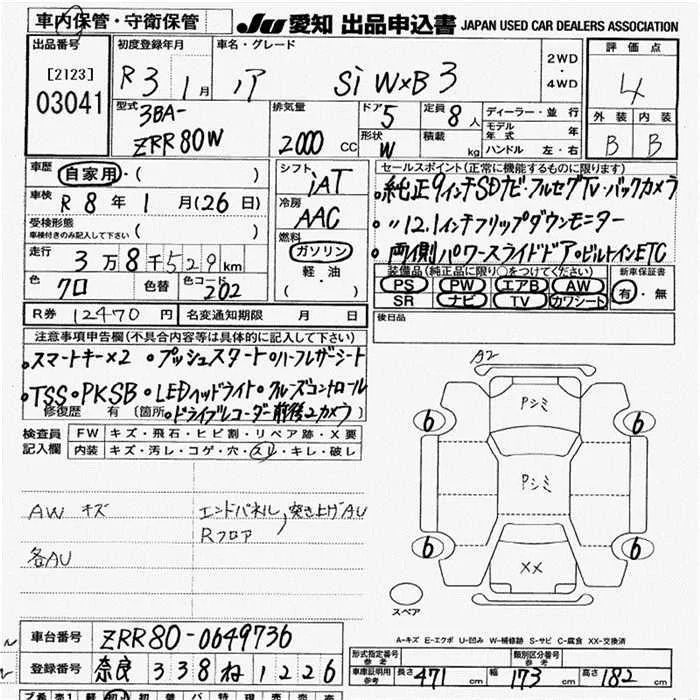 車内保管・守衛保管
JU 愛知 出品申込書 JAPAN USED CAR DEALERS ASSOCIATION
出品番号
[2123]
03041
初度登録年月
R3 1月
車名・グレード
ノア Si W×B 3
2WD
・
4WD
評価点
4
外装 内装
B B
型式
3BA-
ZRR80W
排気量
2000 CC
ドア
5
形状
W
定員
8人
積載
kg
ディーラー・並行
モデル年式 年
ハンドル 左・右
車歴
自家用・( )
車検
R 8年 1月(26日)
受検形態
車検付きのみ記入して下さい ( )
走行
3万8千529km
色
クロ
色替
色コード
202
シフト
iAT
冷房
AAC
燃料
ガソリン
・
軽・油
( )
セールスポイント(正常に機能するものに限ります)
•純正9インチSDナビ・フルセグTV・バックカメラ
•〃12.1インチフリップダウンモニター
•両側パワースライドドア•ビルトインETC
装備品(純正品に限り○をつけてください)
PS PW エアB AW
SR ナビ TV カワシート
新車保証書
有・無
R券 12470円 名変通知期限 月 日
後日品
注意事項申告欄(不具合内容等は具体的に記入して下さい)
•スマートキー×2 •プッシュスタート•ハーフレザーシート
•TSS•PKSB•LEDヘッドライト•クルーズコントロール
修復歴 有(箇所 •ドライブレコーダー前後2カメラ)
検査員記入欄
FW キズ・飛石・ヒビ割・リペア跡・X要
内装 キズ・汚レ・コゲ・穴・スレ・キレ・破レ
AW キズ
エンドパネル,突き上げAU
Rフロア
各AU
A2
Pシミ
6 6
Pシミ
6 6
XX
スペア
A-キズ E-エクボ U-凹み W-補修跡 S-サビ C-腐食 XX-交換済
車台番号 ZRR80-0649736
登録番号 奈良 338 ね 1226
形式指定番号 参考
類別区分番号 参考
車庫証明用参考 長さ 471 cm 幅 173 cm 高さ 182 cm